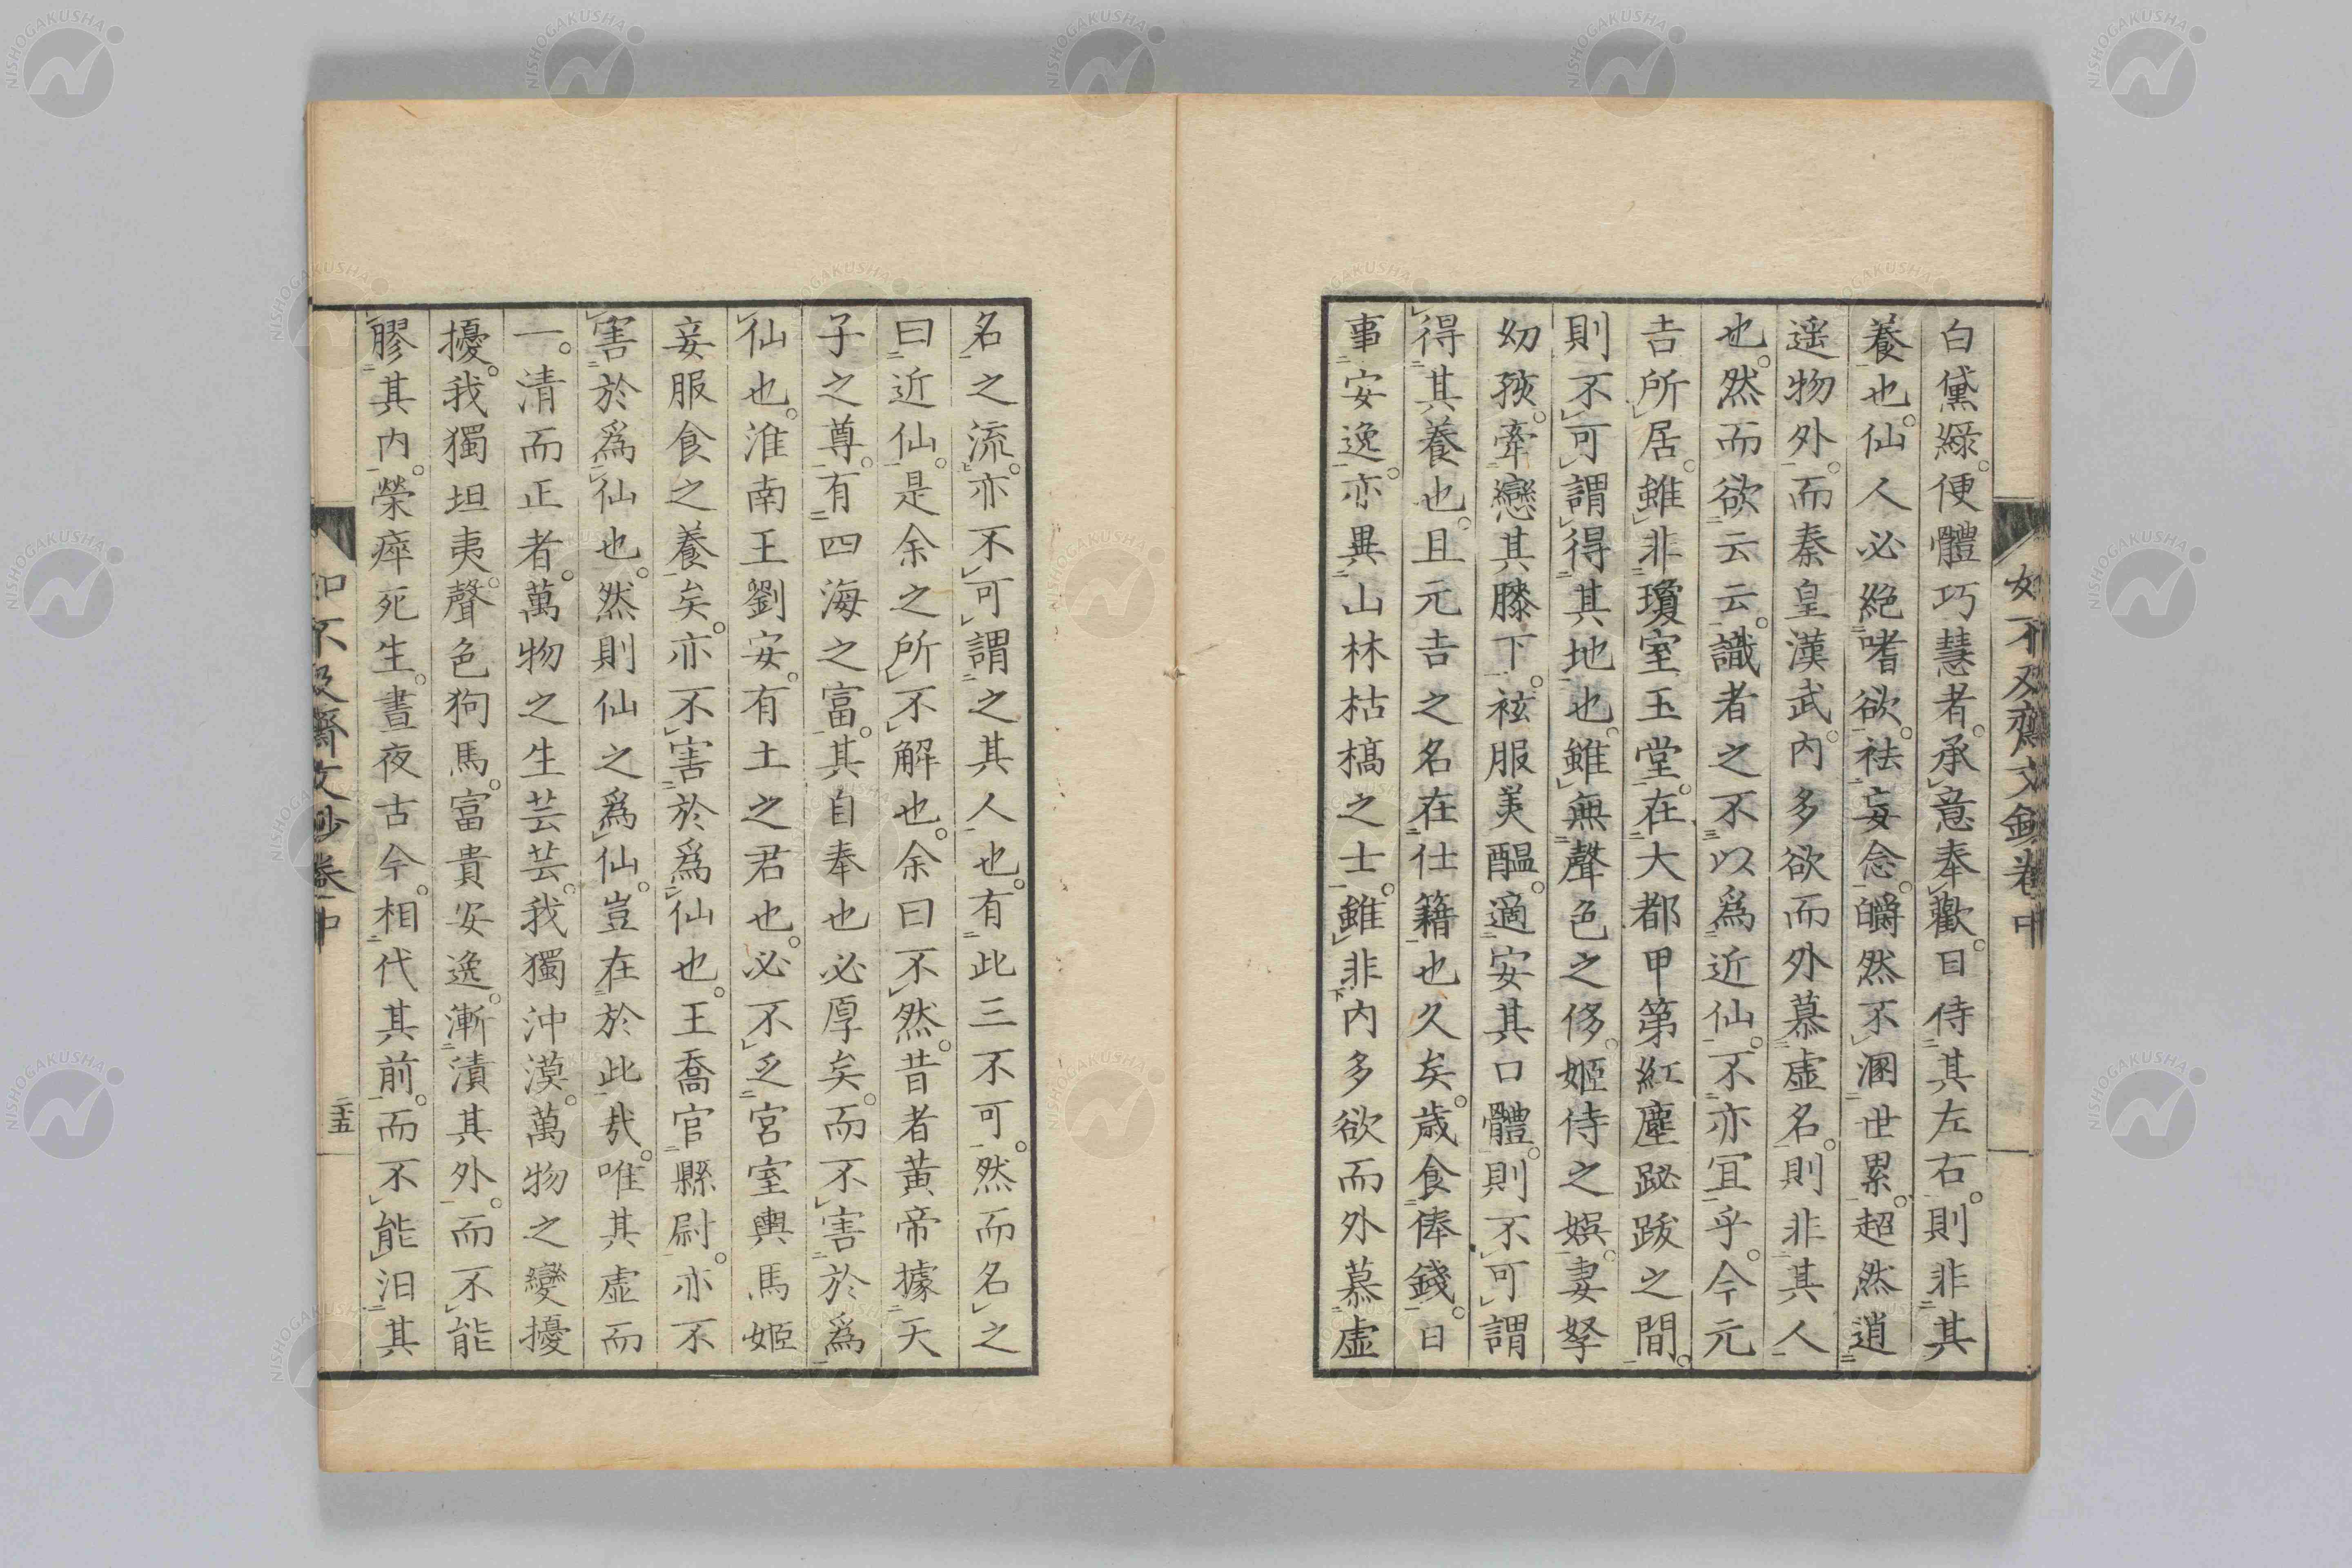 如不及齋文鈔卷中
白黛綠。便體巧慧者。承意奉歡。日侍其左右。則非其
養也。仙人必絕嗜欲。祛妄念。皭然不溷世累。超然逍
遥物外。而秦皇漢武。內多欲而外慕虛名。則非其人
也。然而欲云云。識者之不以爲近仙。不亦宜乎。今元
吉所居。雖非瓊室玉堂。在大都甲第紅塵跋跋之間。
則不可謂得其地也。雖無聲色之侈。姬侍之娛。妻孥
幼孩。牽戀其膝下。袨服美醞。適安其口體。則不可謂
得其養也。且元吉之名在仕籍也久矣。歲食俸錢。日
事安逸。亦異山林枯槁之士。雖非內多欲而外慕虛
名之流。亦不可謂之其人也。有此三不可。然而名之
曰近仙。是余之所不解也。余曰不然。昔者黃帝據天
子之尊。有四海之富。其自奉也必厚矣。而不害於爲
仙也。淮南王劉安。有土之君也。必不乏宮室輿馬姬
妾服食之養矣。亦不害於爲仙也。王喬官縣尉。亦不
害於爲仙也。然則仙之爲仙。豈在於此哉。唯其虛而
一。清而正者。萬物之生芸芸。我獨沖漠。萬物之變擾
擾。我獨坦夷。聲色狗馬。富貴安逸。漸漬其外。而不能
膠其內。榮瘁死生。晝夜古今。相代其前。而不能汩其
如不及齋文鈔卷中
二十五
NISHOGAKUSHA